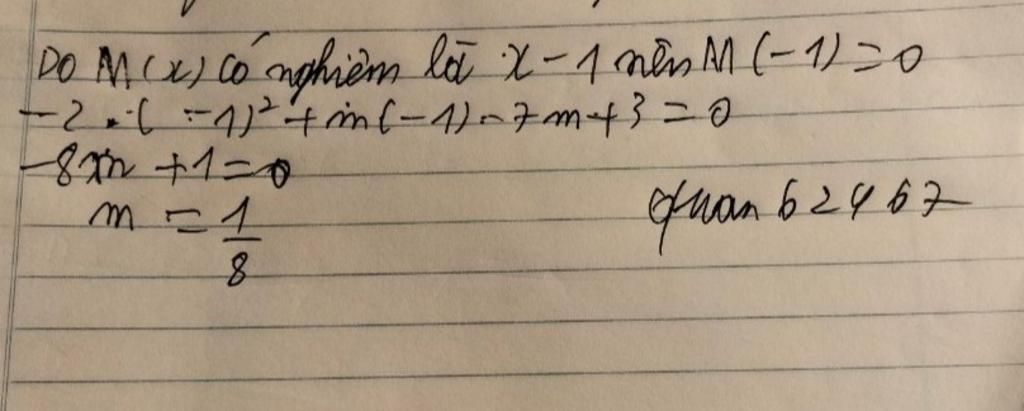 Do M(x) có nghiệm là x - 1 nên M(-1) = 0
-2 . (-1)² + m(-1) - 7m + 3 = 0
-8m + 1 = 0
m = 1/8
quan 62467